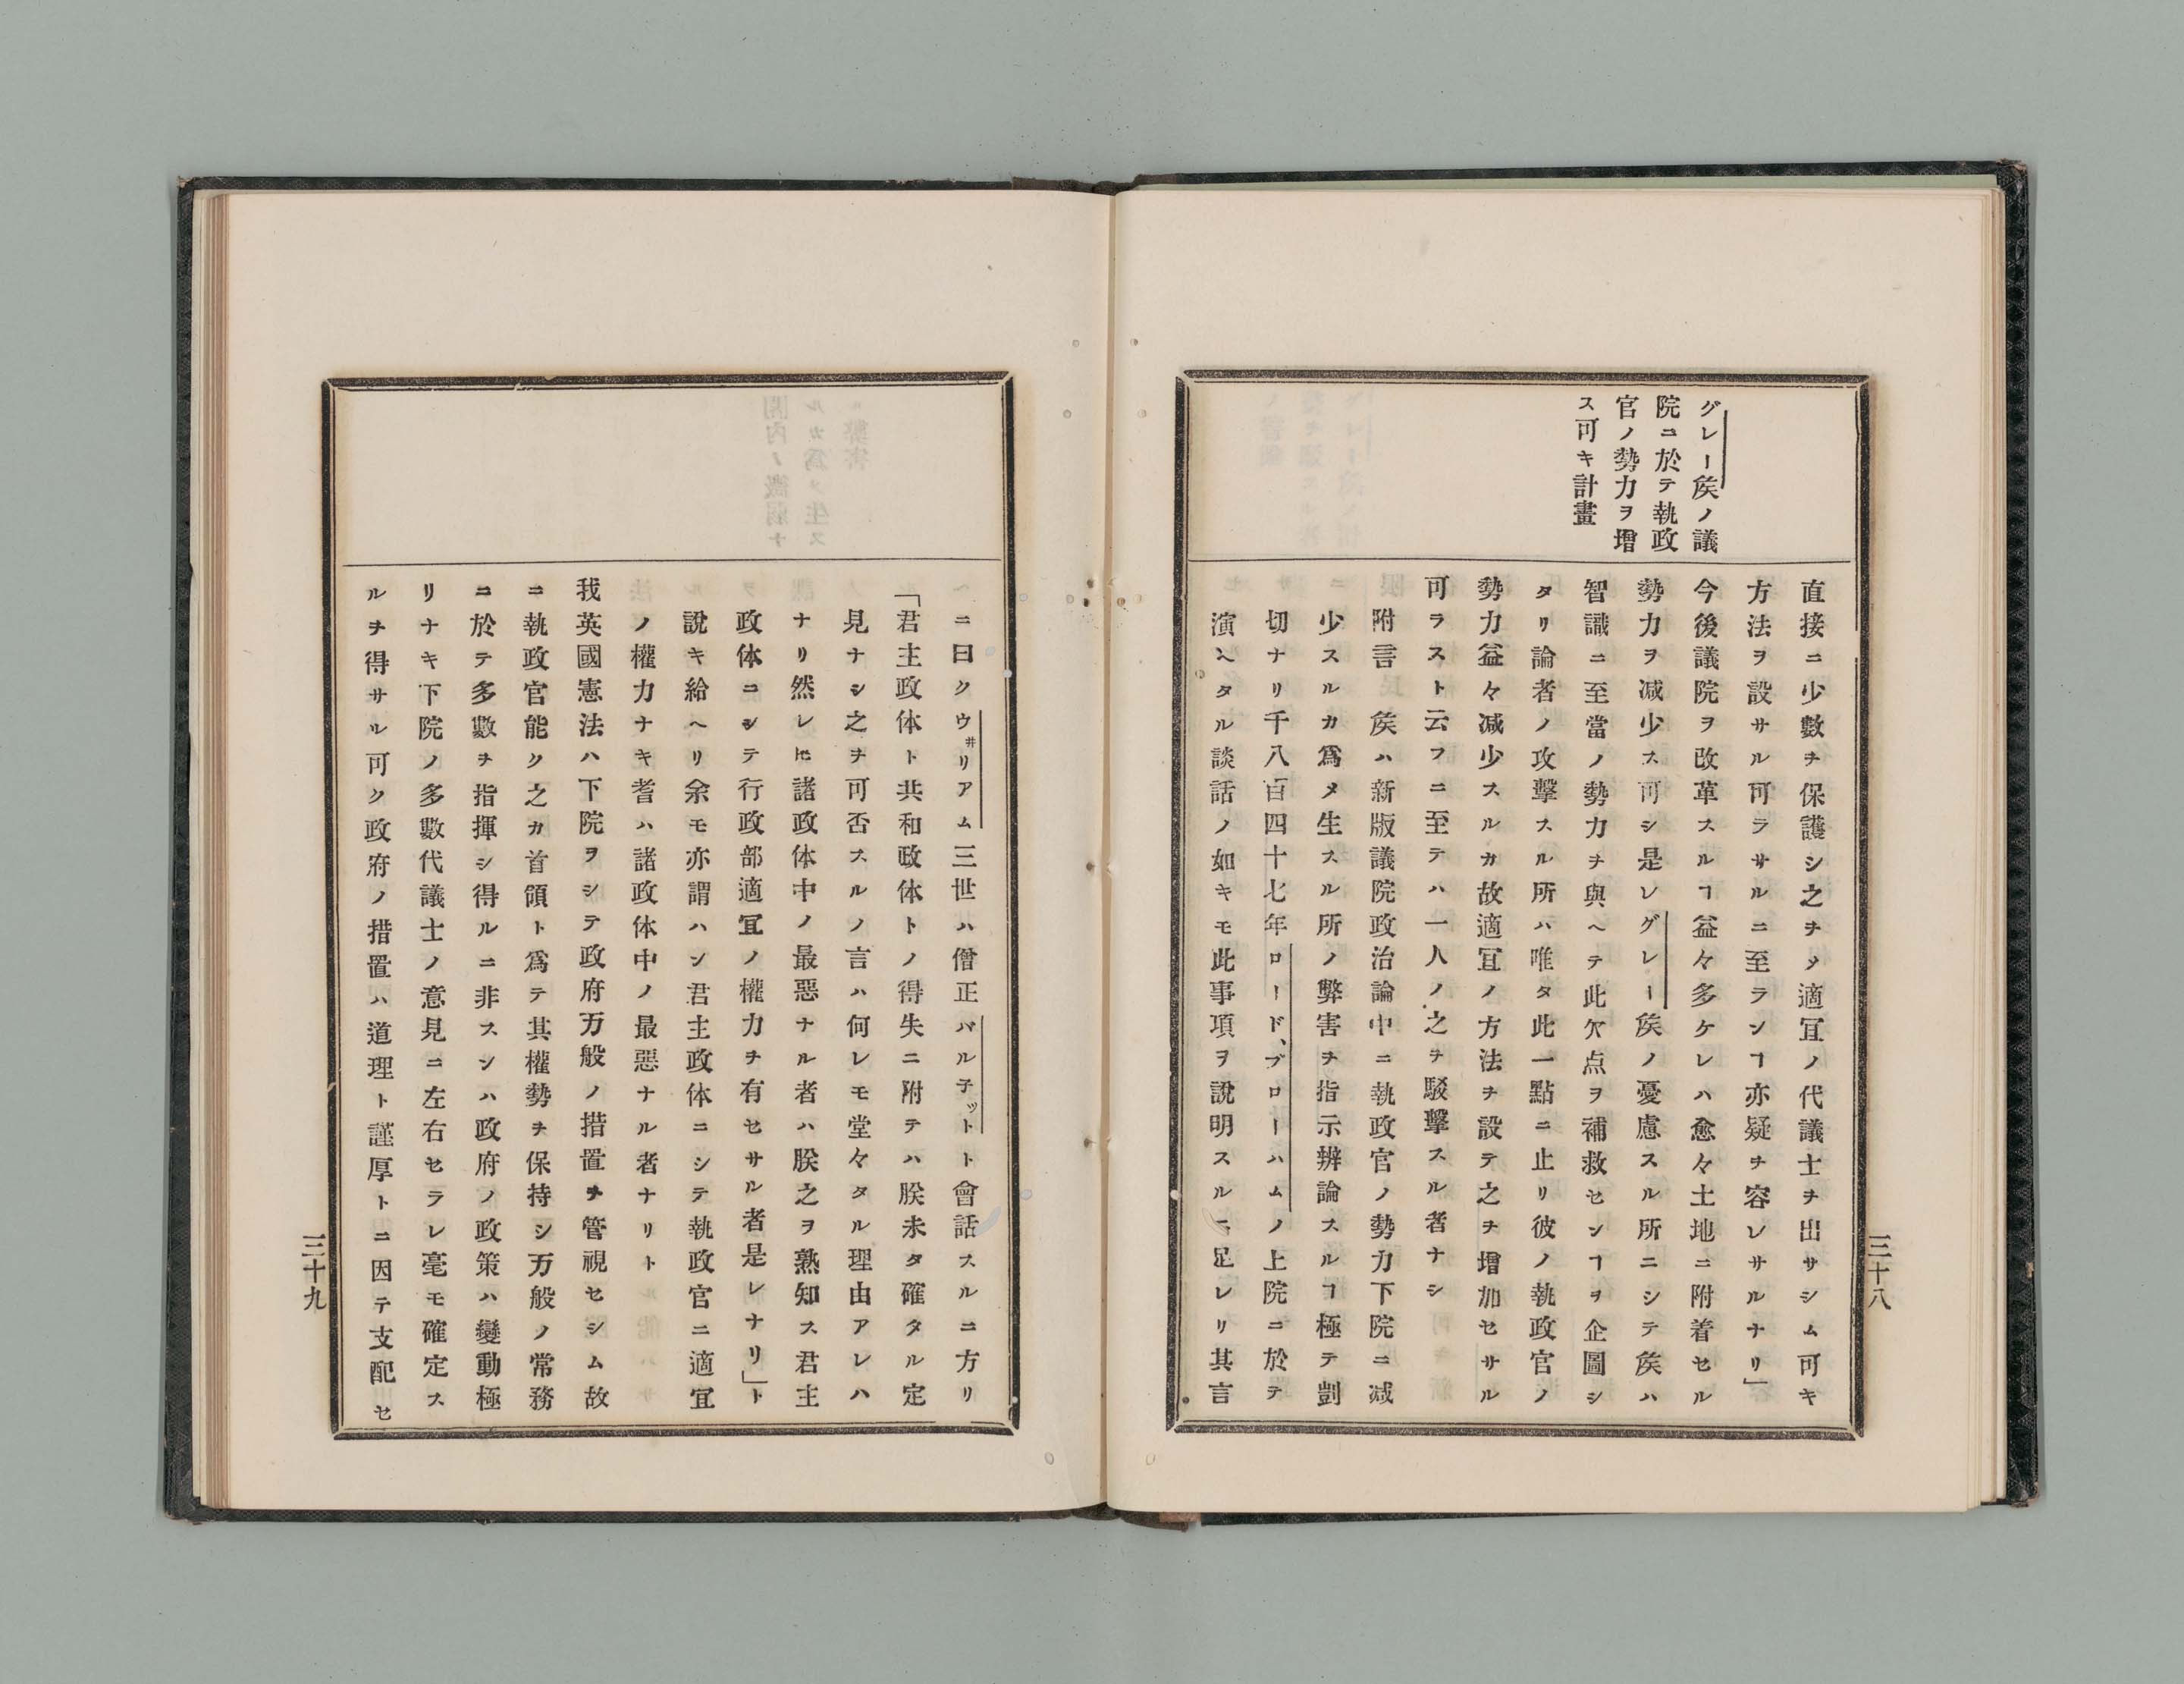 グレー矦ノ議
院ニ於テ執政
官ノ勢力ヲ增
ス可キ計畫
直接ニ少數ヲ保護シ之ヲメ適冝ノ代議士ヲ出サシム可キ
方法ヲ設サル可ラサルニ至ランヿ亦疑ヲ容レサルナリ」
今後議院ヲ改革スルヿ益々多ケレハ愈々土地ニ附着セル
勢力ヲ減少ス可シ是レグレー矦ノ憂慮スル所ニシテ矦ハ
智識ニ至當ノ勢力ヲ與ヘテ此欠点ヲ補救センヿヲ企圖シ
タリ論者ノ攻擊スル所ハ唯タ此一點ニ止リ彼ノ執政官ノ
勢力益々減少スルカ故適冝ノ方法ヲ設テ之ヲ增加セサル
可ラスト云フニ至テハ一人ノ之ヲ駁擊スル者ナシ
附言矦ハ新版議院政治論中ニ執政官ノ勢力下院ニ減
少スルカ爲メ生スル所ノ弊害ヲ指示辨論スルヿ極テ剴
切ナリ千八百四十七年ロード、ブローハムノ上院ニ於テ
演ヘタル談話ノ如キモ此事項ヲ說明スルニ足レリ其言
三十八
ニ曰クウ井リアム三世ハ僧正バル子ットト會話スルニ方リ
「君主政体ト共和政体トノ得失ニ附テハ朕未タ確タル定
見ナシ之ヲ可否スルノ言ハ何レモ堂々タル理由アレハ
ナリ然レ𪜈諸政体中ノ最惡ナル者ハ朕之ヲ熟知ス君主
政体ニシテ行政部適冝ノ權力ヲ有セサル者是レナリ」ト
說キ給ヘリ余モ亦謂ハン君主政体ニシテ執政官ニ適冝
ノ權力ナキ者ハ諸政体中ノ最惡ナル者ナリト
我英國憲法ハ下院ヲシテ政府万般ノ措置ヲ管視セシム故
ニ執政官能ク之カ首領ト爲テ其權勢ヲ保持シ万般ノ常務
ニ於テ多數ヲ指揮シ得ルニ非スンハ政府ノ政策ハ變動極
リナキ下院ノ多數代議士ノ意見ニ左右セラレ毫モ確定ス
ルヲ得サル可ク政府ノ措置ハ道理ト謹厚トニ因テ支配セ
三十九